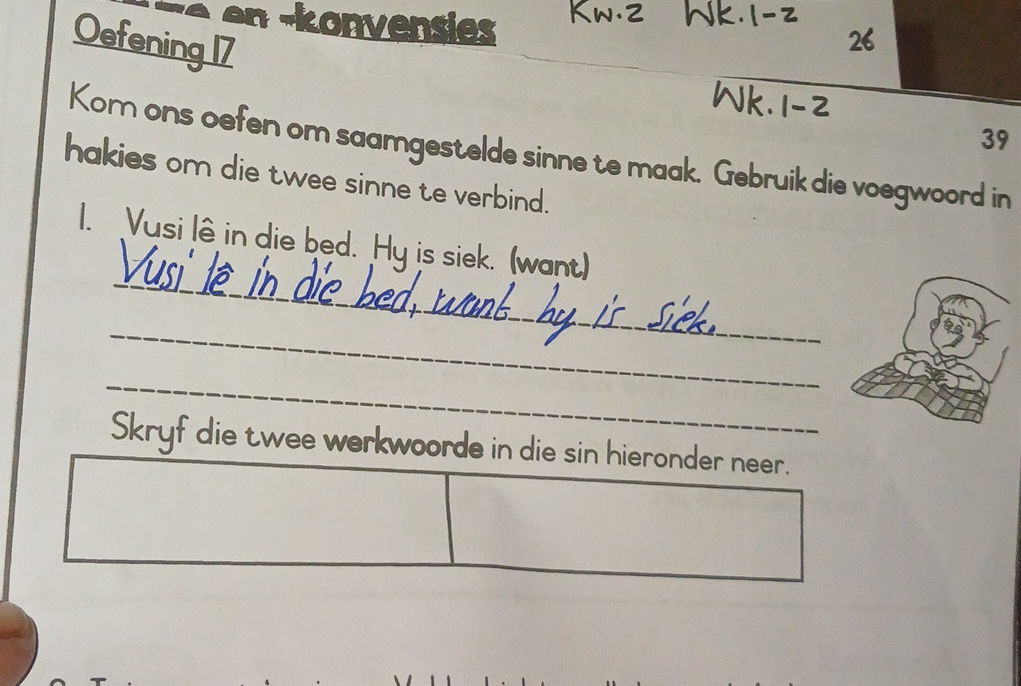 en -konvensies
Kw.2 Wk.1-2
26
Oefening 17
Wk.1-2
39
Kom ons oefen om saamgestelde sinne te maak. Gebruik die voegwoord in
hakies om die twee sinne te verbind.
1. Vusi lê in die bed. Hy is siek. (want)
Vusi lê in die bed, want hy is siek.
Skryf die twee werkwoorde in die sin hieronder neer.